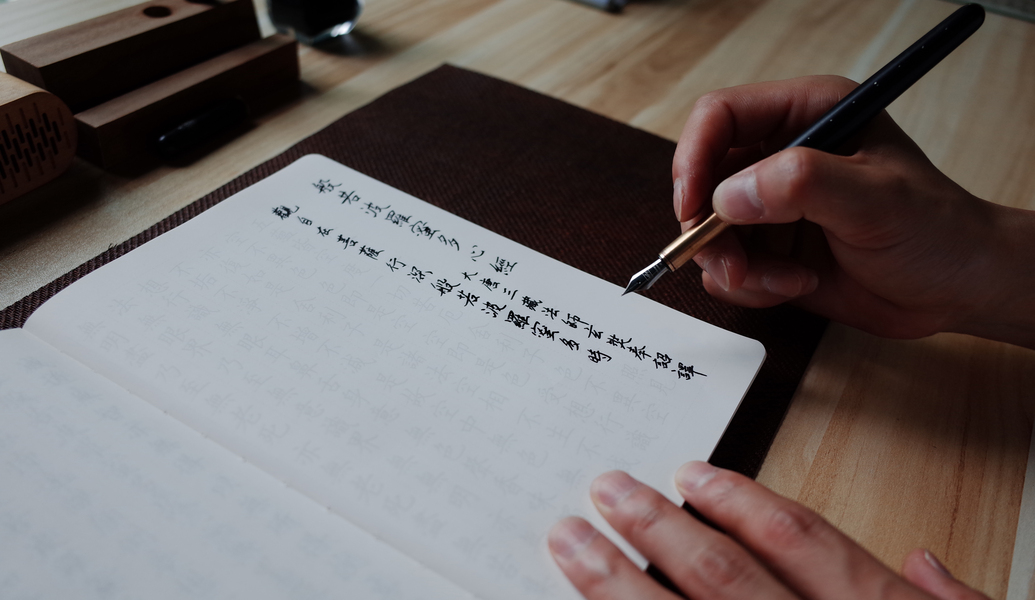 般若波羅蜜多心經 大唐三藏法師玄奘奉詔譯
觀自在菩薩行深般若波羅蜜多時